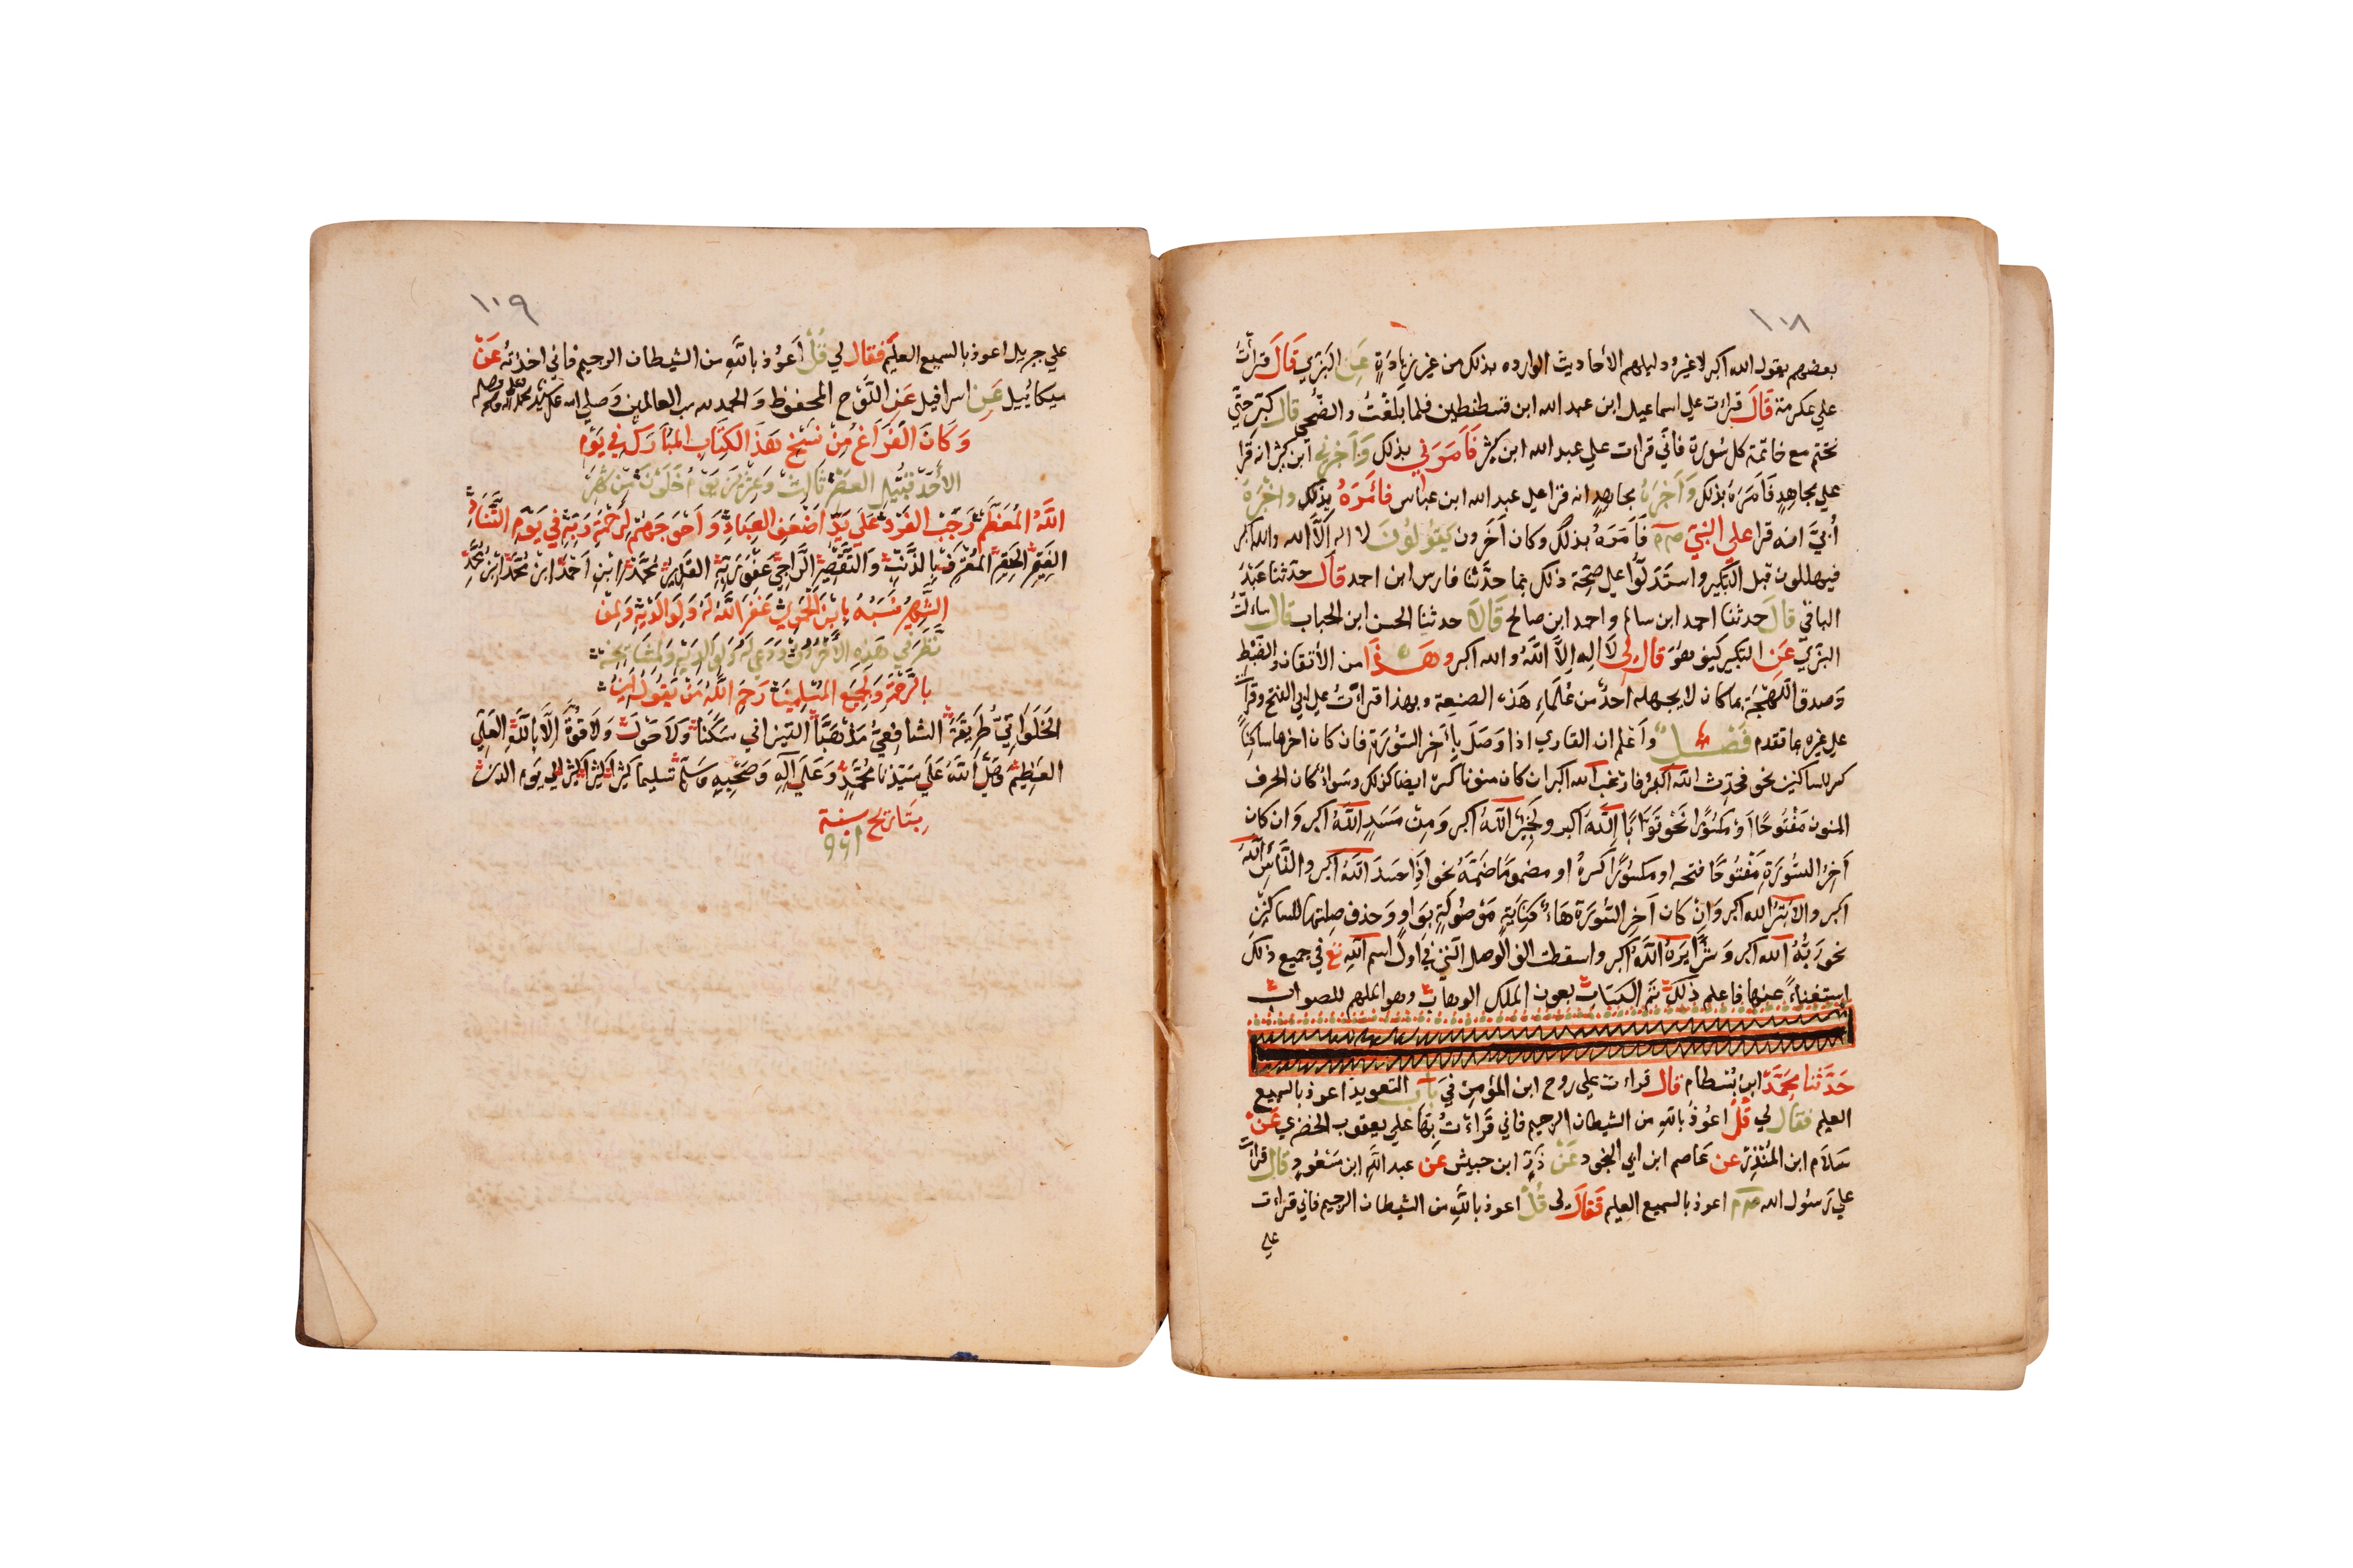 ١٠٨
بعضهم بقول الله اكبر لا غيره ودليلهم الأحاديث الوارده بذلك من غير زيادَةٍ عَنِ البَزّي قَالَ قرأتُ
علي عكرمة قَالَ قرات علي اسماعيل ابن عبد الله ابن قسطنطين فلما بَلَغْتُ والضُّحي قال كبِّر حتّي
تختم مع خاتمة كل سُورة فأني قراءت علي عبد الله ابن كثير فَاَمَرَني بذلك وَاَخبرني ابن كثير انه قرا
علي مجاهِدٍ فَاَمَرَهُ بذلك وَاَخْبَرَهُ مجاهِدٍ انه قرا علي عبد الله ابن عباس فأمَرَهُ بذلِكَ واخْبَرَهُ
أُبَيَّ انه قرا علي النبيّ صلم فَاَمَرَهُ بذلك وكان آخَرون يَقُولُونَ لا اله اِلَّا الله والله اكبر
فيهللون قبل التكبير واستَدَلّوُا علي صِحّة ذلك بما حدَّثنا فارس ابن احمد قالَ حدّثنا عَبْدُ
الباقي قالَ حدثنا احمد ابن سالم واحمد ابن صالح قَالَا حدثنا الحسن ابن الحباب قال ساءلتُ
البزّيّ عَنِ التكبير كيف هُوَ قال لي لَا اِلهِ اِلَّا اللهُ والله اكبر وهَذَا من الأتقان والضَّبْطِ
وَصدق اللّهْجَة بمكان لا يجهله احدٌ من عُلَمَاءِ هَذه الصنِعة وبهذا قراءتُ علي ابي الفتح وقرأت
علي غيره بما تقدم فَصْل واَعْلم ان القاري اذا وَصَلَ بِآخر السُورَة فان كان اخرها ساكِنًا
كسر للساكنين نحو فحدِّث الله اكبر فارغب الله اكبر ان كان منونا كسره ايضا كذلك وسَواءٌ كان الحرف
المنون مَفْتُوحًا اَوْ مَكسُورًا نَحْو تَوَّابًا اللَّهُ اكبر ولَخَبِيرٌ اللهُ اكبر وَمِنْ مَسَدٍ اللَّهُ اكبر وَان كان
آخِرُ السُورَةِ مَفْتُوحًا فتحه او مكسُورًا كسرهُ او مضمومًا ضَمَّهُ نحو اِذَا حَسَدَ اللهُ اكبر والنَّاسِ اللهُ
اكبر والابْتَرُ الله اكبر وَاِنْ كان آخِر السُّورَة هَاء كِنَايَةٍ مَوْصُولَةٍ بِوَاوٍ وَحذف صِلتها للساكنين
نحو رَبُّهُ الله اكبر وَ شَرًّا يَرَهُ اللَّهُ اكبر واسقطت الف الوصل التي في اول اسم اللهِ تع في جميع ذلك
استغناءً عنها فاعلم ذلك تَم الكتاب بعون الملك الوهاب وهو الملهم للصواب
حَدَّثنا مُحَمَّدُ ابن بُسْطام قال قراءت علي روح ابن المؤمِن في بَاب التعويذ اعوذ بالسميع
العليم فقال لي قُل اعُوذ بالله من الشيطان الرجيم فاني قَراءتُ بِهَا علي يعقوب الحضري عَنْ
سَلَام ابن المُنْذِر عن عَاصم ابن ابي النجود عَنْ زَرِّ ابن حبيش عَن عبد اللهِ ابن مَسْعُودٍ قال قراءت
علي رَسُول الله صلم اعوذ بالسميع العليم فَقالَ لي قُل اعوذ بالله من الشيطان الرجيم فاني قراءت
علي
١٠٩
علي جبريل اعوذ بالسميع العليم فقال لي قُلْ اَعوُذ باللَّهِ من الشيطان الرجيم فاني اخذتُهُ عَنْ
ميكائيل عَن اسرافيل عَنِ اللَّوْح المحفوظ وَالحمد لله رب العالمين وَصلي الله علي سيدنا محمد وعلي اله وصحبه وسلم
وَكَانَ الفَرَاغُ مِنْ نَسْخِ هَذَ الكِتَابِ المُبَارَكِ في يَوْم
الأَحَدْ قُبَيْل العَصْر ثَالِث وَعِشْرِين يَوْمُ خَلَوْنَ مِنْ شَهْرِ
اللَّهُ المُعَظَّم رَجَبْ الفَرْد عَلَي يَدِ اَضْعَفِ العِبَادِ وَاَحْوَجَهُمْ لِرَحْمَةِ رَبِّهِ في يَوْمِ التَّنَادِ
الفَقِير الحَقِير المُعْتَرِفْ بِالذَّنْبِ وَالتَّقْصِيْر الرَّاجِيِّ عَفْوَ رَبِّهِ القَدِير مُحَمَّدْ ابْنِ اَحْمَدْ ابْنْ مُحَمَّدْ ابْنْ مُحَمَّدْ
الشَّهِيرُ نَسَبُهُ بِابْنِ الحَمَوِيّ غَفَرَ اللَّهُ لَهُ وَلِوَالَدَيْهِ وَلِمَنْ
نَظَرَ في هَذِهِ الأَحْرُفْ وَدَعي لَهُ وَلِوَالِدَيْهِ وَلِمَشَايِخِهْ
بِالرَّحْمَة وَلِجَمِيع المُسْلِمِينَ رَحِمَ اللَّهُ مَنْ يَقُولُ آمِينْ
الخَلْوَاتِيّ طَرِيْقَةً الشافِعيّ مَذْهَبًا التيزاني سَكَنًا وَلَا حَوْلَ وَلَا قُوَّةَ اِلَّا بِاللَّهِ العَلِيّ
العَظِيْم وَصَلَّي اللَّهُ عَلَي سَيّدنا مُحَمّدٍ وَعَلَي آلِهِ وَصَحْبِهِ وَسَلّمْ تسليما كثيرًا كثيرًا كثيرًا الي يَوم الدين
بِتَارِيخِ سنة
٩٩١